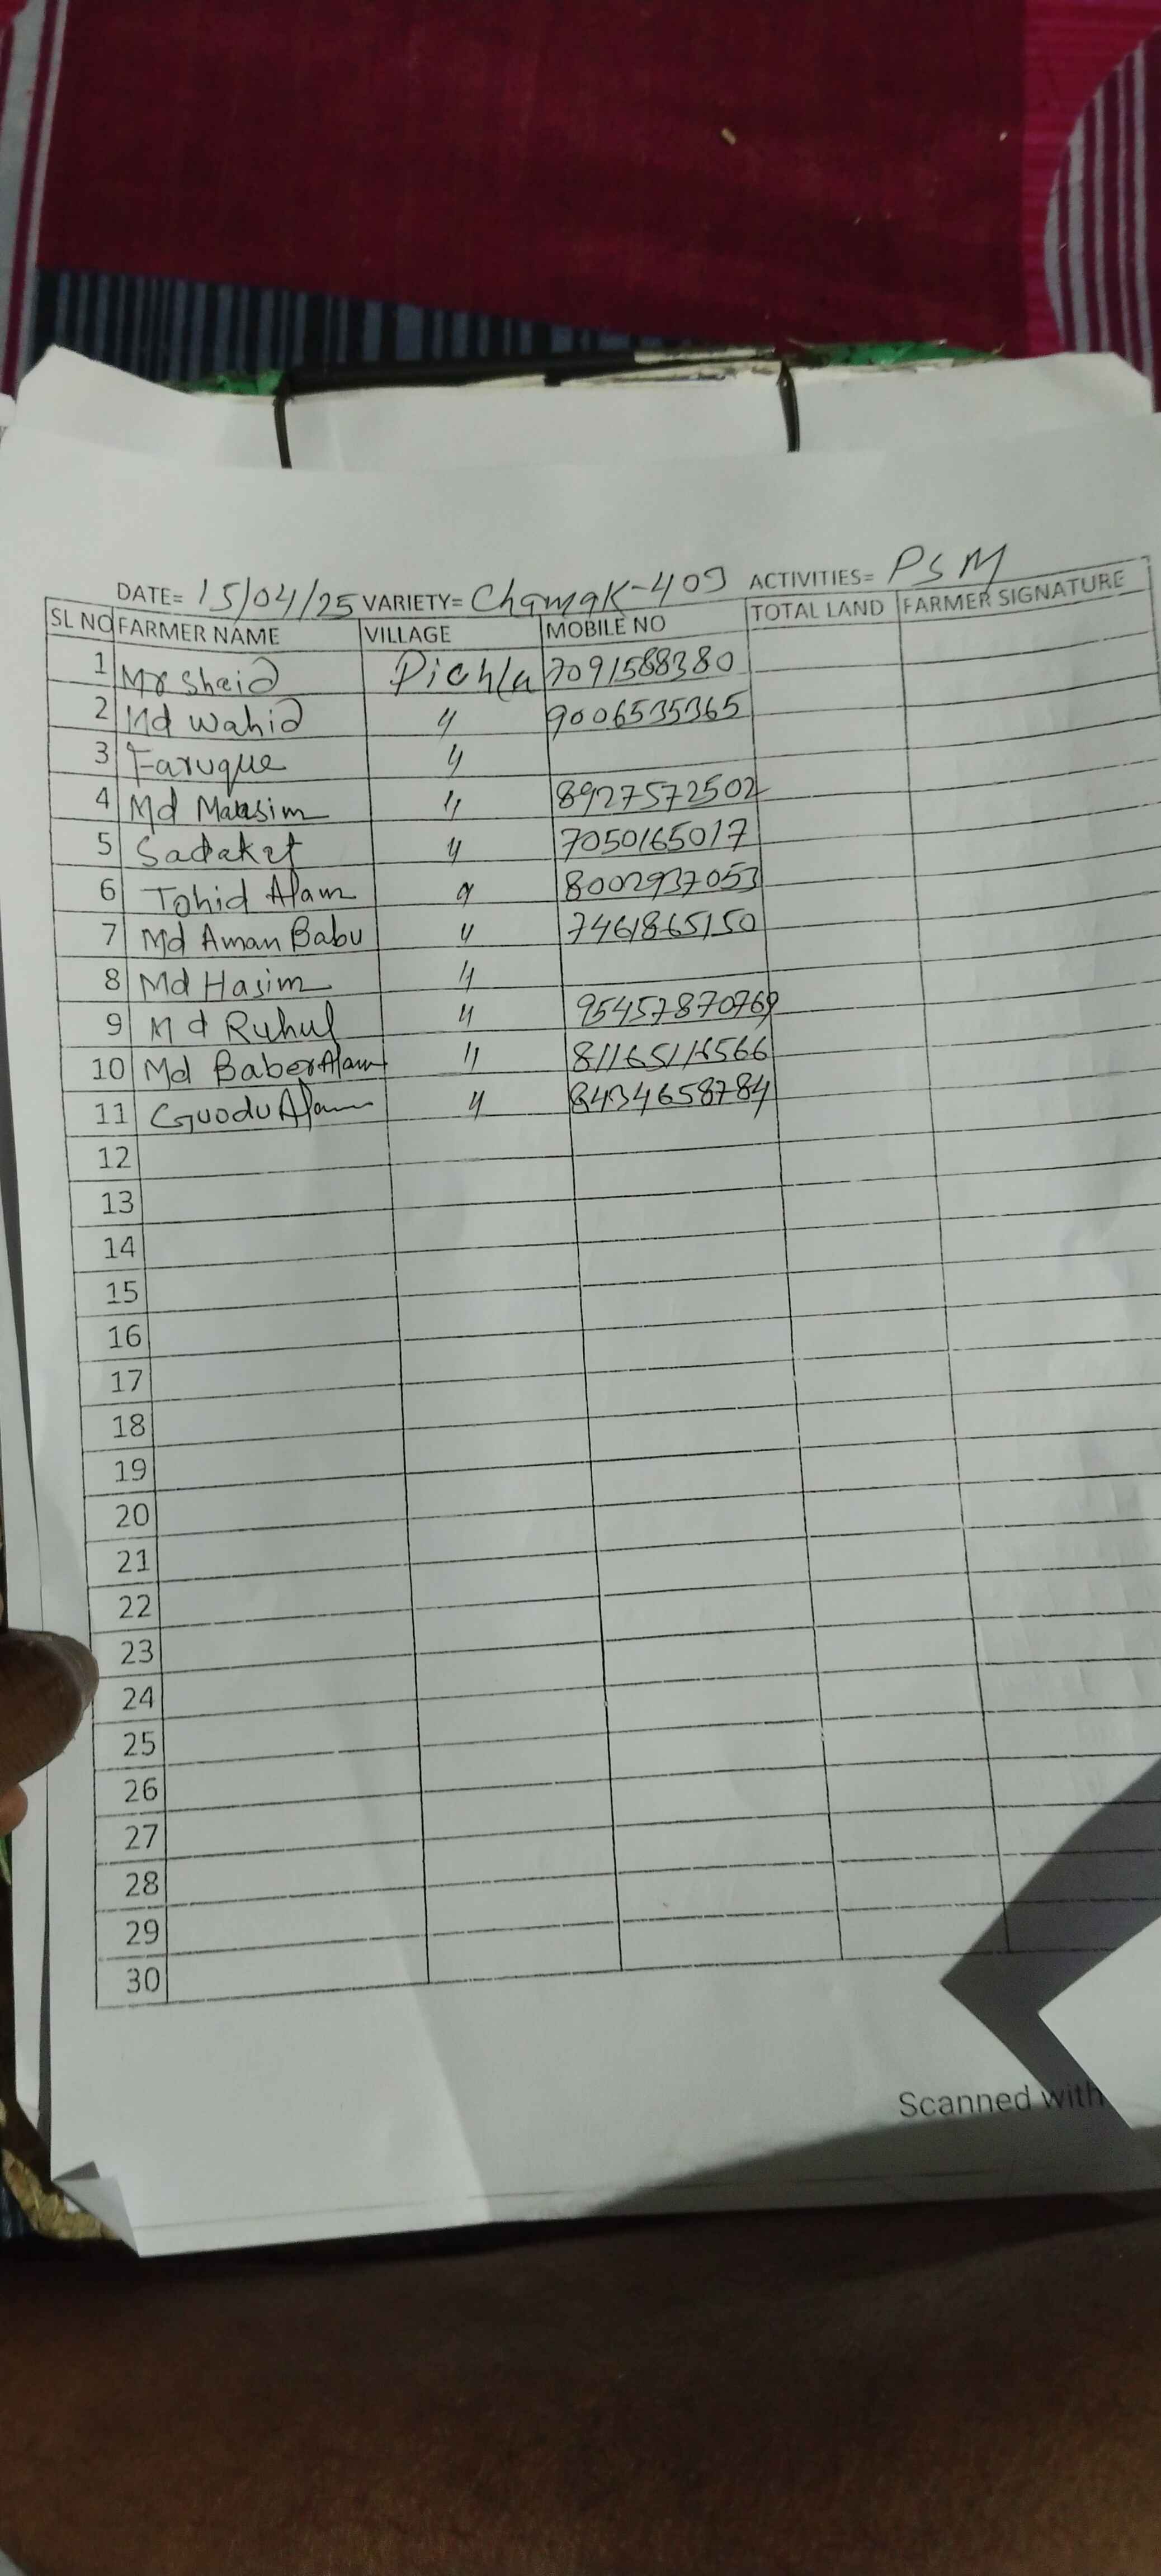 DATE= 15/04/25 VARIETY= Chamak-409 ACTIVITIES= PSM
SL NO FARMER NAME VILLAGE MOBILE NO TOTAL LAND FARMER SIGNATURE
1 Md Shaid Pichla 7091588380
2 Md Wahid " 9006535365
3 Faruque "
4 Md " 8927572502
5 Sadakat " 7050165017
6 Tohid Alam " 8002937053
7 Md Aman Babu " 7461865150
8 Md Hasim "
9 Md Ruhul " 95457870769
10 Md Baber Alam "
11 Guddu Alam " 8434658784
12
13
14
15
16
17
18
19
20
21
22
23
24
25
26
27
28
29
30
Scanned with